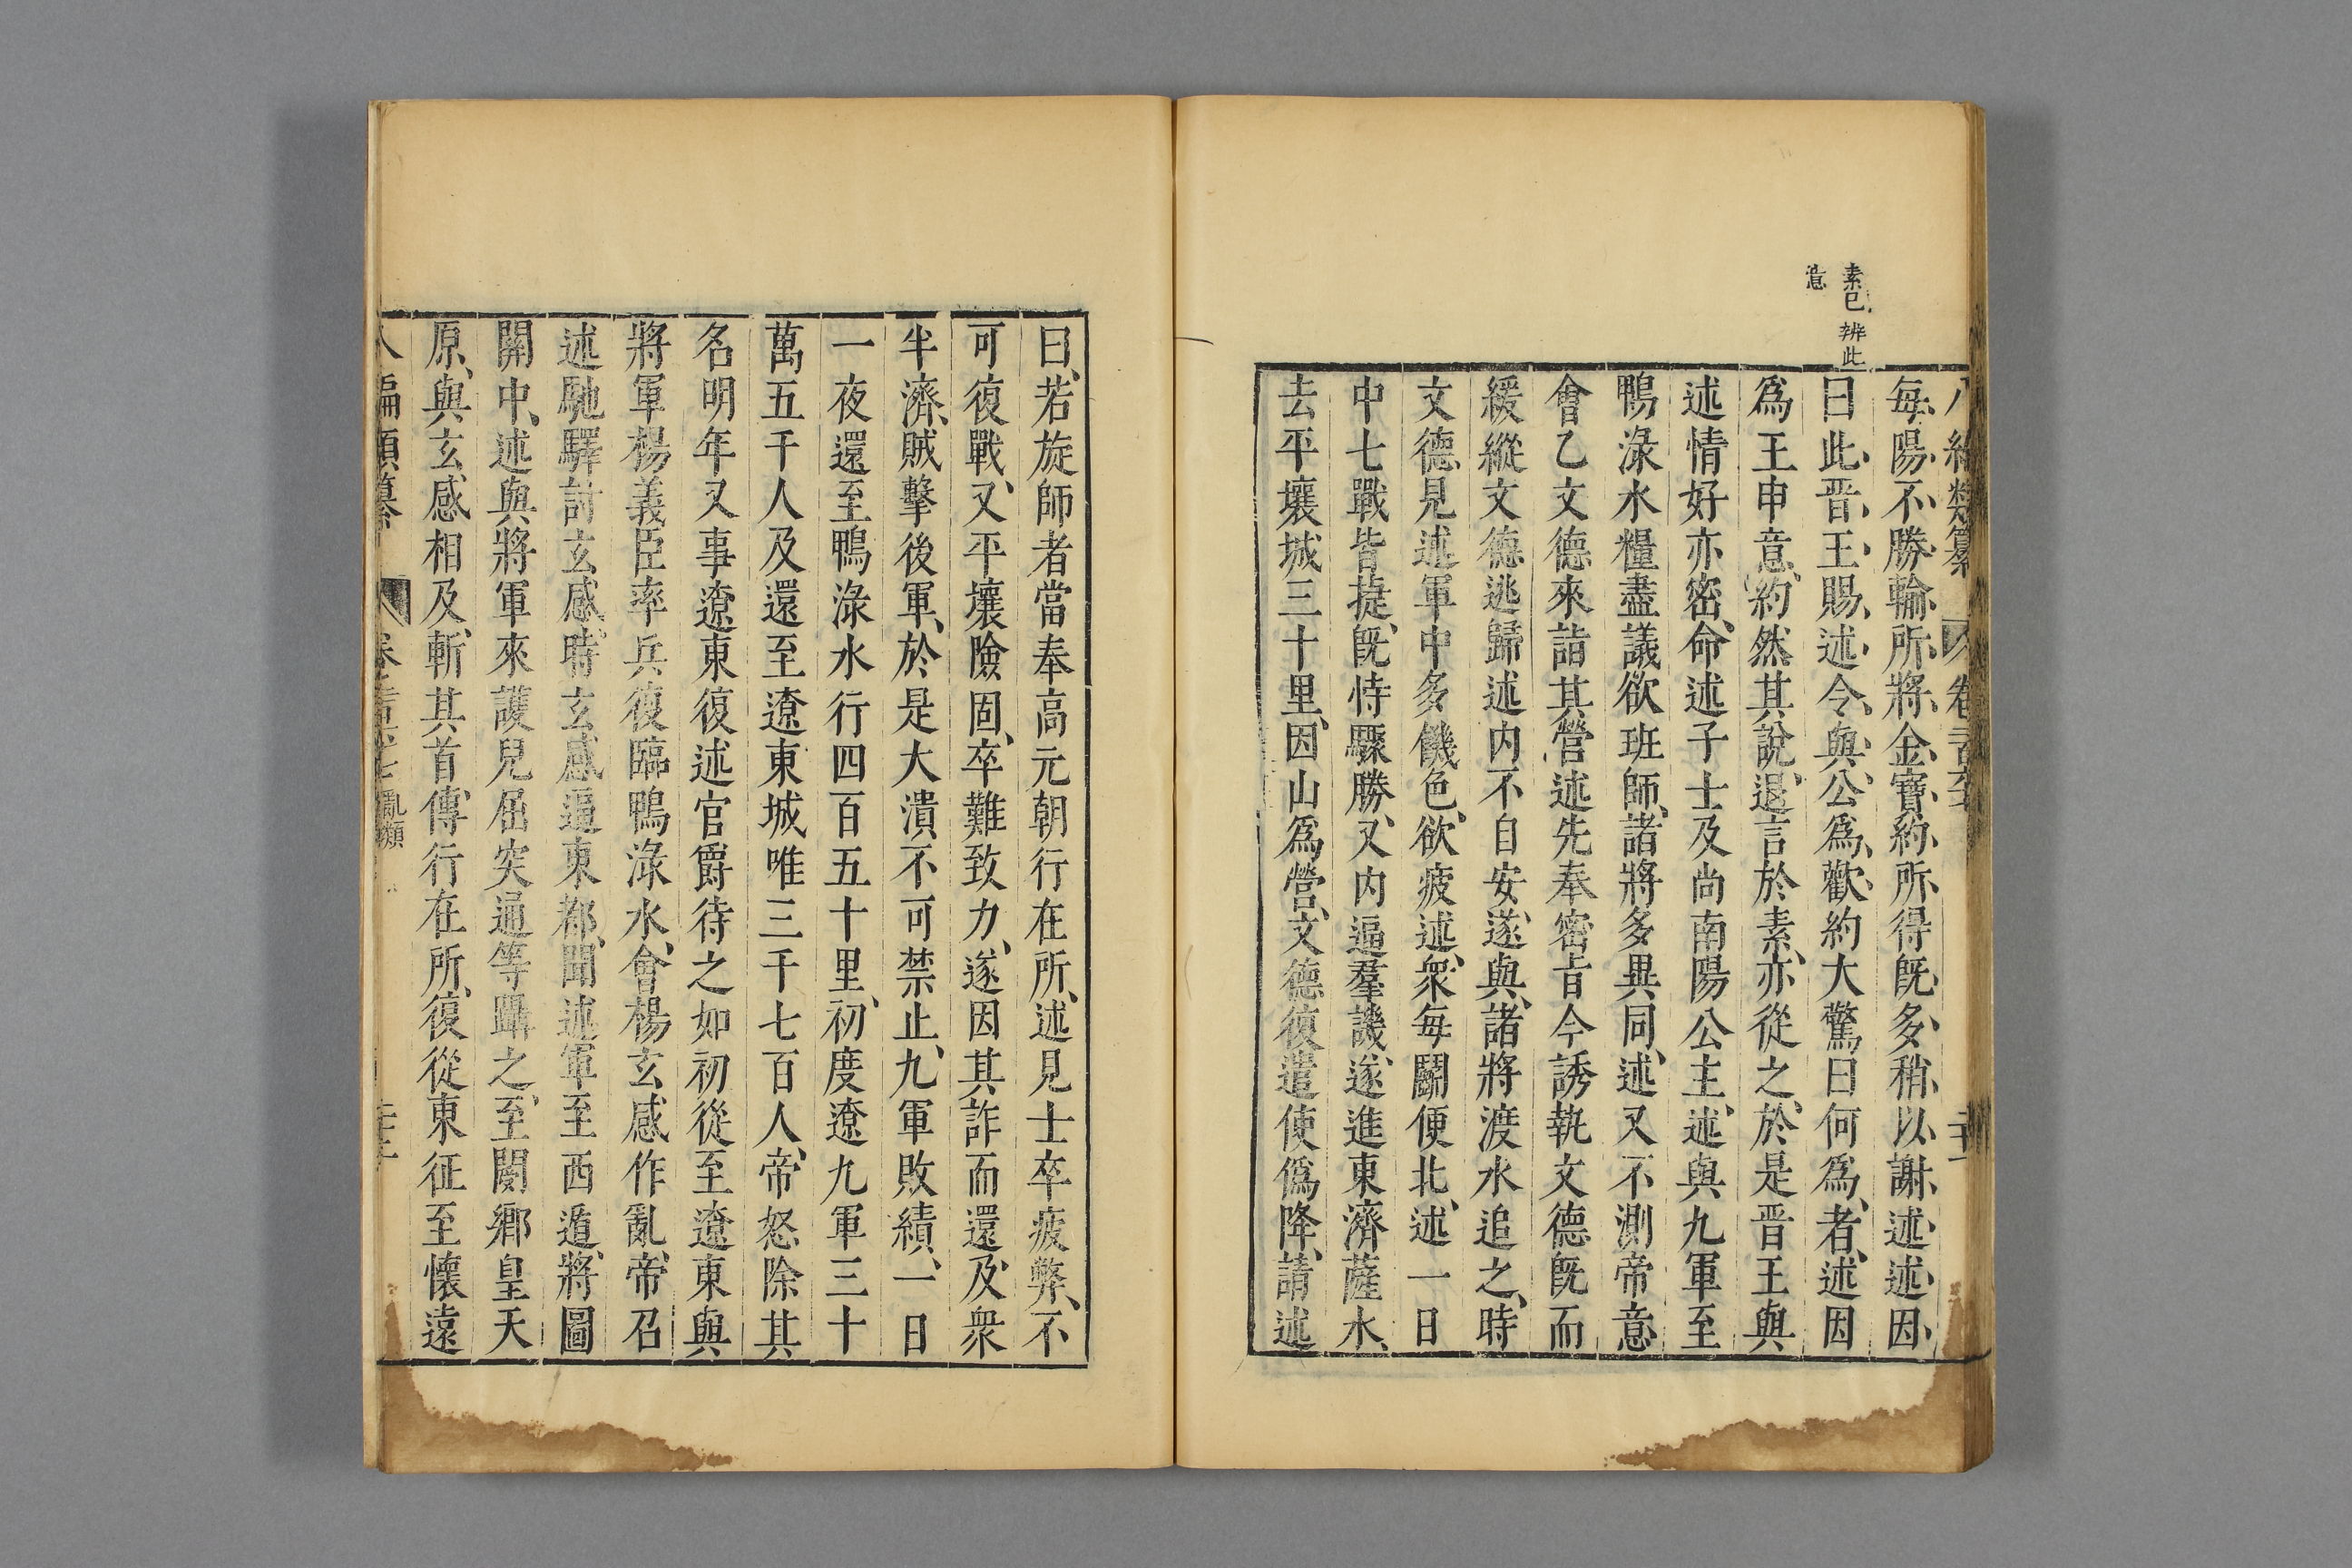 素巳辨此
意
每陽不勝輸所將金寶約所得旣多稍以謝述述因
曰此晋王賜述令與公爲歡約大驚曰何爲者述因
爲王申意約然其說退言於素亦從之於是晋王與
述情好亦密命述子士及尚南陽公主述與九軍至
鴨淥水糧盡議欲班師諸將多異同述又不測帝意
會乙文德來詣其營述先奉密旨今誘執文德旣而
緩縱文德逃歸述内不自安遂與諸將渡水追之時
文德見述軍中多饑色欲疲述衆每鬬便北述一日
中七戰皆㨗旣恃驟勝又内逼羣議遂進東濟薩水
去平壤城三十里因山爲營文德復遣使僞降請述
曰若旋師者當奉高元朝行在所述見士卒疲弊不
可復戰又平壤險固卒難致力遂因其詐而還及衆
半濟賊擊後軍於是大潰不可禁止九軍敗績一日
一夜還至鴨淥水行四百五十里初度遼九軍三十
萬五千人及還至遼東城唯三千七百人帝怒除其
名明年又事遼東復述官爵待之如初從至遼東與
將軍楊義臣率兵復臨鴨淥水會楊玄感作亂帝召
述馳驛討玄感時玄感逼東都聞述軍至西遁將圖
關中述與將軍來護兒屈突通等躡之至閿鄉皇天
原與玄感相及斬其首傳行在所復從東征至懷遠